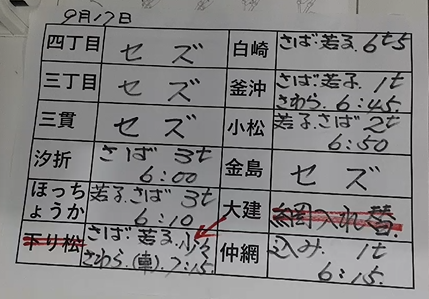 9月17日
四丁目 セズ 白崎 さば.若子.6t5
三丁目 セズ 釜沖 さば.若子.1t
さわら.6:45
三貫 セズ 小松 若子.さば2t
6:50
汐折 さば 3t
6:00 金島 セズ
ほっち
ょうか 若子.さば 3t
6:10 大建 網入れ替.
下り松 さば.若子.少々
さわら.(車).7:15. 仲網 込み. 1t
6:15.